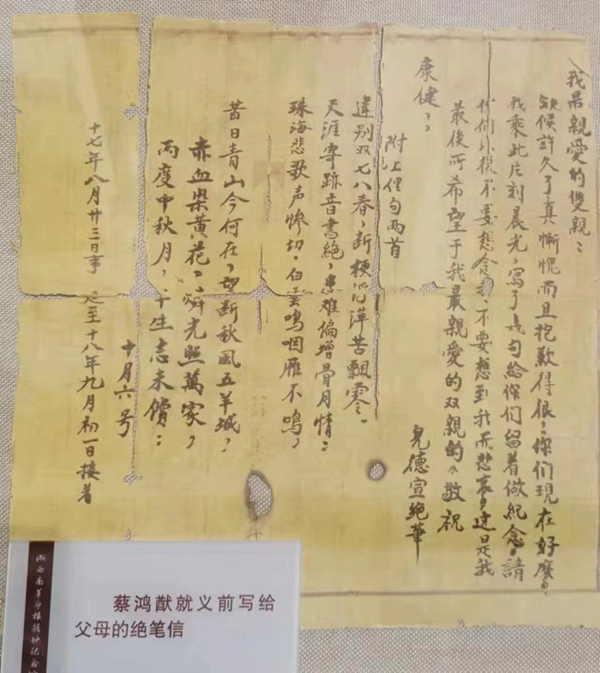 我最親愛的雙親：
缺候許久了真慚愧而且抱歉得很！你们現在好麽？
我乘此片刻晨光，寫了幾句給你们留着做紀念，請
你们以後不要想念 不要想到我而悲哀，这是我
最後所希望于我最親愛的双親的。敬祝
康健，
兒德宣絶筆
附上俚句两首
違别双七八春，断梗浮萍苦飄零。
天涯寄跡音書絶，患难偏增骨月情；
珠海悲歌声惨切，白雲鳴咽雁不鳴，
昔日青山今何在，望断秋風五羊城，
赤血染黄花，燐光照萬家，
两度中秋月，平生志未償：
十月六号
十七年八月廿三日事 延至十八年九月初一日接着
浙西南革命根据地纪念
蔡鸿猷就义前写给
父母的绝笔信